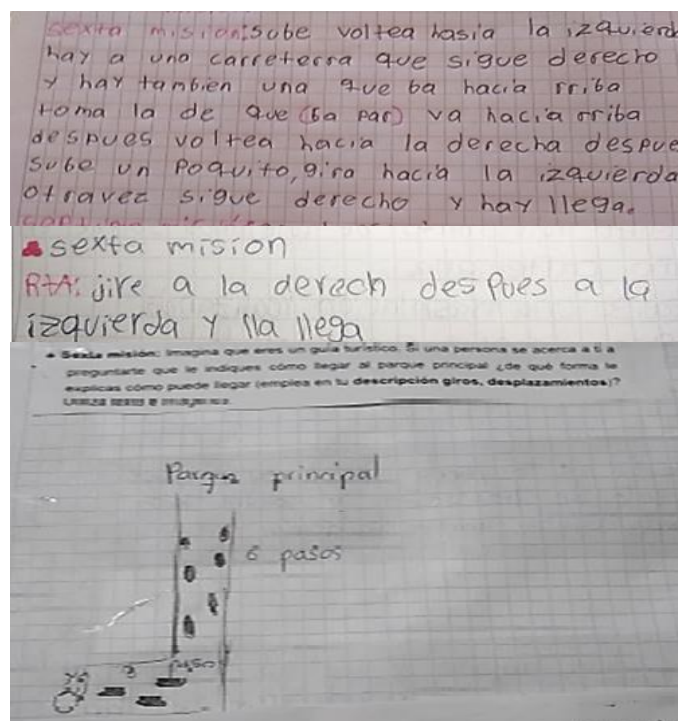 sexta mision: Sube voltea hasia la izquierd
hay a una carreterra que sigue derecho
y hay tanbien una que ba hacia rriba
toma la de que (ba par) va hacia orriba
despues voltea hacia la derecha despue
sube un poquito, giro hacia la izquierda
otravez sigue derecho y hay llega.
sexta mision
RtA: jire a la derech des pues a la
izquierda y lla llega
Sexta misión: Imagina que eres un guía turístico. Si una persona se acerca a ti a
preguntarte que le indiques cómo llegar al parque principal ¿de qué forma le
explicas cómo puede llegar (emplea en tu descripción giros, desplazamientos)?
Utiliza texto e
Parque principal
6 pasos